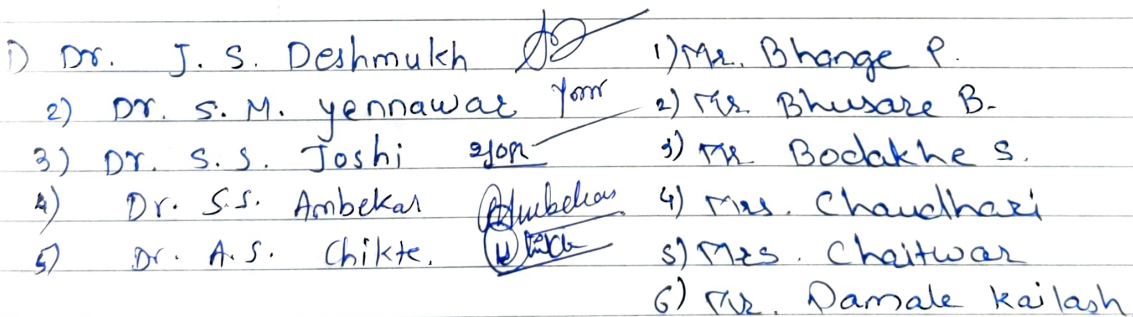 1) Dr. J. S. Deshmukh
2) Dr. S. M. Yennawar
3) Dr. S. S. Joshi
4) Dr. S.S. Ambekar Ambekar
5) Dr. A. S. Chikte.
1) Mr. Bhange P.
2) Mr. Bhusare B.
3) Mr Bodakhe S.
4) Mrs. Chaudhari
5) Mrs. Chaitwar
6) Mr. Damale Kailash